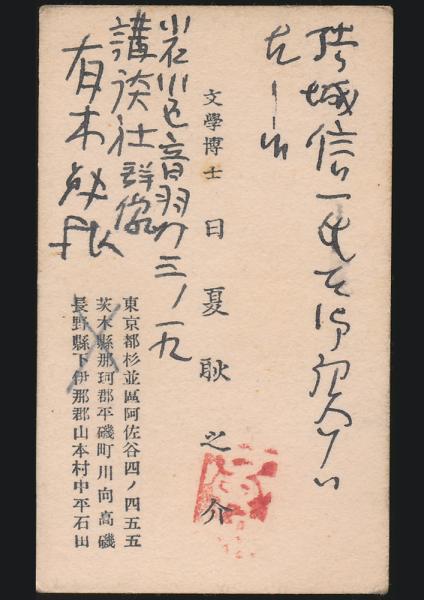 結城信一氏を御紹介
文學博士 日夏耿之介
小石川区音羽町三ノ一九
講談社群像
有木勉
東京都杉並區阿佐谷四ノ四五五
茨木縣那珂郡平磯町川向高磯
長野縣下伊那郡山本村中平石田